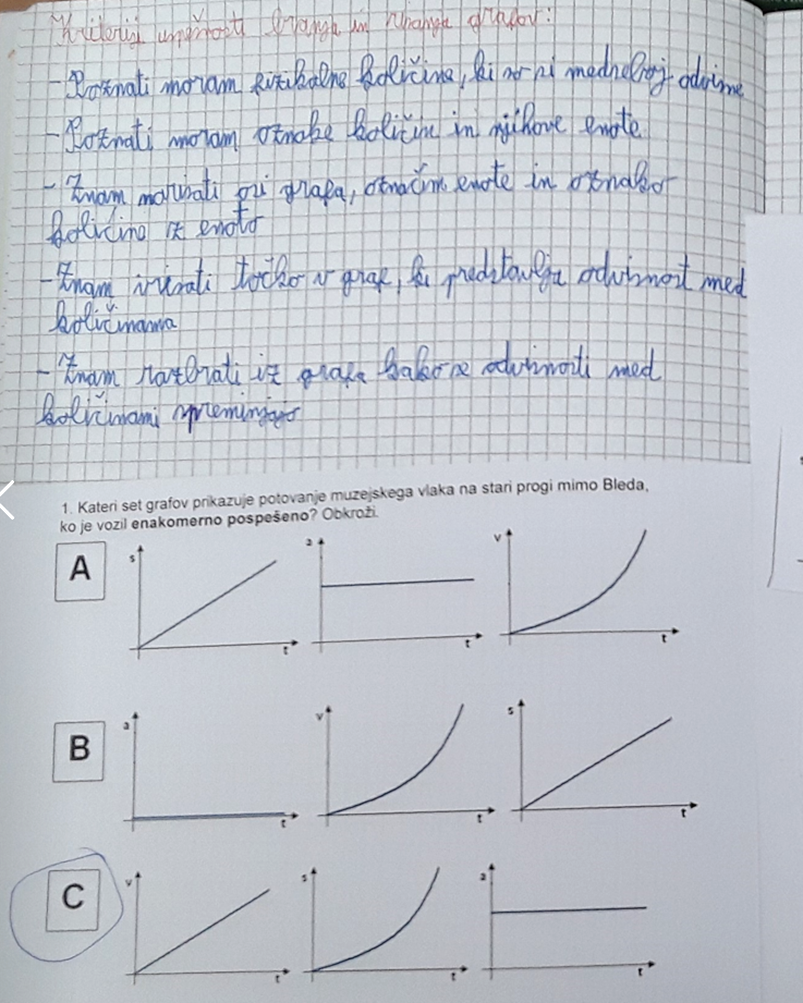 Kriteriji uspešnosti branja in risanja grafov:
- Poznati moram fizikalne količine, ki so si medseboj odvisne
- Poznati moram oznake količin in njihove enote
- Znam narisati osi grafa, označim enote in oznako
količino iz enoto
- Znam vrisati točko v graf, ki predstavlja odvisnost med
količinama
- Znam razbrati iz grafa kako se odvisnosti med
količinami spreminjajo
1. Kateri set grafov prikazuje potovanje muzejskega vlaka na stari progi mimo Bleda,
ko je vozil enakomerno pospešeno? Obkroži.
A
s t
a t
v t
B
a t
v t
s t
C
v t
s t
a t